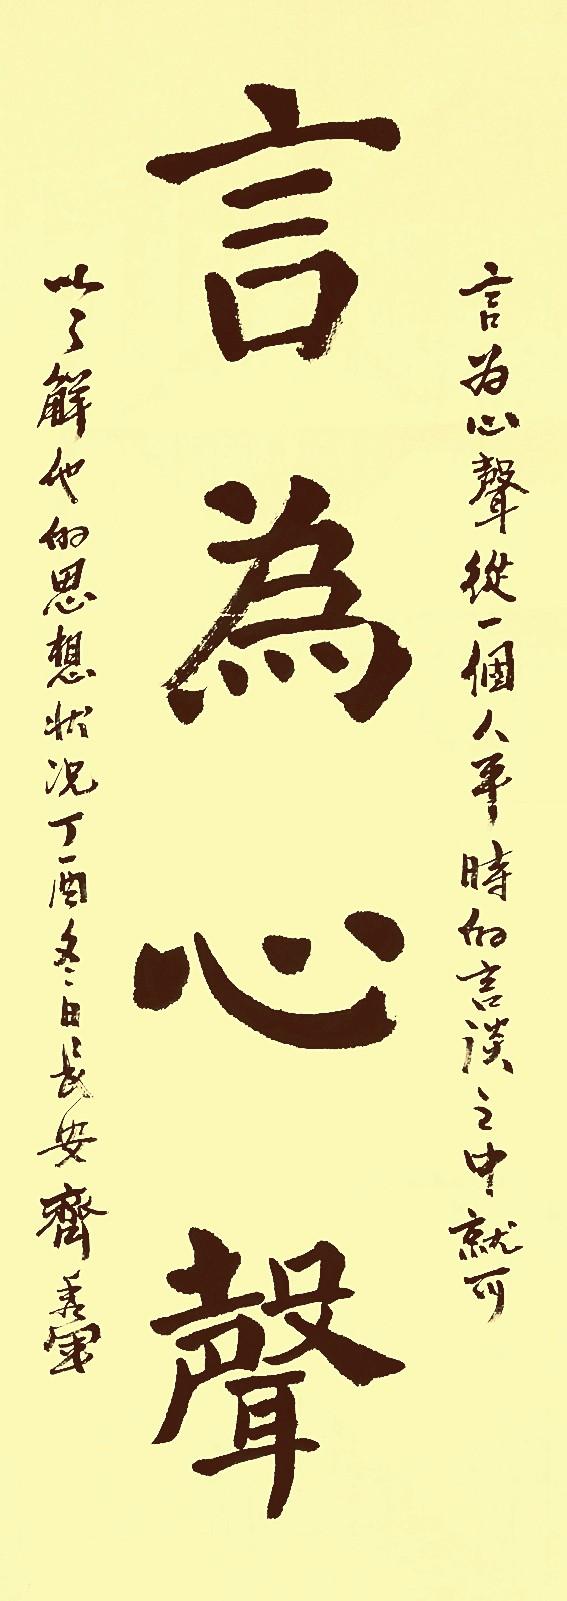 言為心聲
言为心聲從一個人平時的言談之中就可
以了解他的思想状况丁酉冬日長安齊